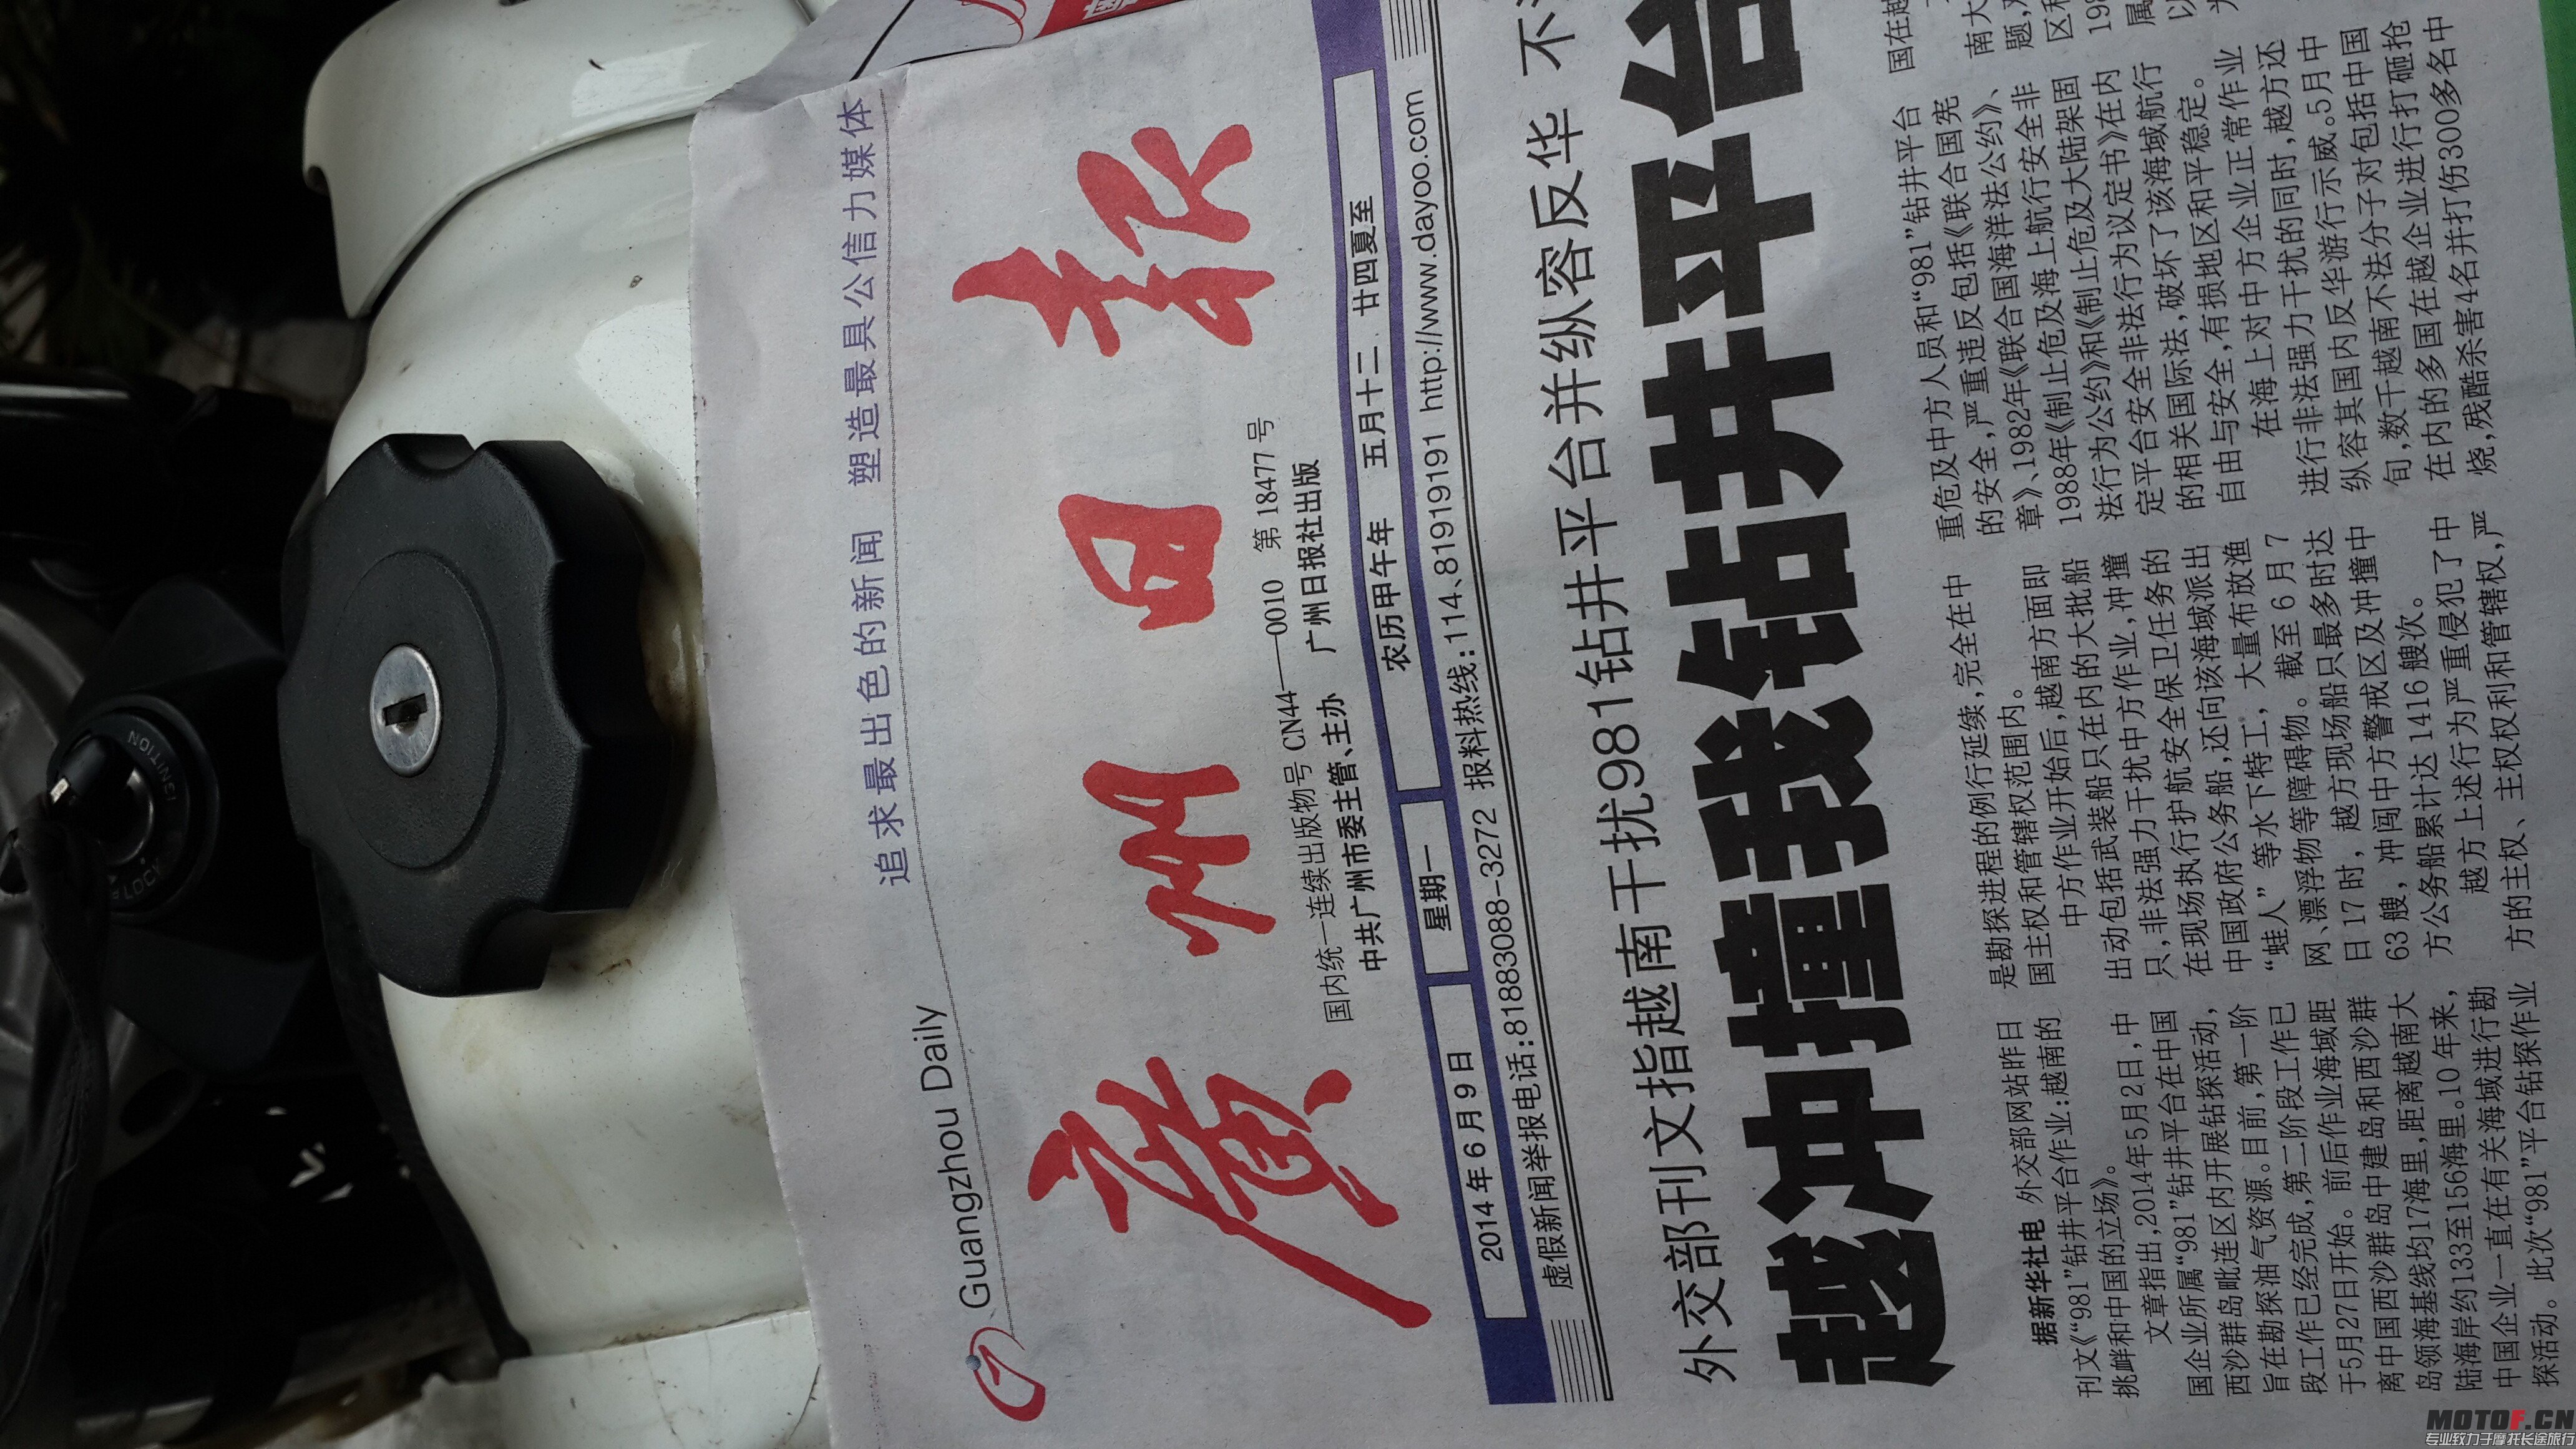 追求最出色的新闻 塑造最具公信力媒体
Guangzhou Daily
广州日报
国内统一连续出版物号 CN44——0010 第18477号
中共广州市委主管、主办 广州日报社出版
2014年6月9日 星期一 农历甲午年 五月十二 廿四夏至
虚假新闻举报电话:81883088-3272 报料热线:114、81919191 http://www.dayoo.com
外交部刊文指越南干扰981钻井平台并纵容反华 不
越冲撞我钻井平台
据新华社电 外交部网站昨日
刊文《“981”钻井平台作业:越南的
挑衅和中国的立场》。
文章指出,2014年5月2日,中
国企业所属“981”钻井平台在中国
西沙群岛毗连区内开展钻探活动,
旨在勘探油气资源。目前,第一阶
段工作已经完成,第二阶段工作已
于5月27日开始。前后作业海域距
离中国西沙群岛中建岛和西沙群
岛领海基线均17海里,距离越南大
陆海岸约133至156海里。10年来,
中国企业一直在有关海域进行勘
探活动。此次“981”平台钻探作业
是勘探进程的例行延续,完全在中
国主权和管辖权范围内。
中方作业开始后,越南方面即
出动包括武装船只在内的大批船
只,非法强力干扰中方作业,冲撞
在现场执行护航安全保卫任务的
中国政府公务船,还向该海域派出
“蛙人”等水下特工,大量布放渔
网、漂浮物等障碍物。截至6月7
日17时,越方现场船只最多时达
63艘,冲闯中方警戒区及冲撞中
方公务船累计达1416艘次。
越方上述行为严重侵犯了中
方的主权、主权权利和管辖权,严
重危及中方人员和“981”钻井平台
的安全,严重违反包括《联合国宪
章》、1982年《联合国海洋法公约》、
1988年《制止危及海上航行安全非
法行为公约》和《制止危及大陆架固
定平台安全非法行为议定书》在内
的相关国际法,破坏了该海域航行
自由与安全,有损地区和平稳定。
在海上对中方企业正常作业
进行非法强力干扰的同时,越方还
纵容其国内反华游行示威。5月中
旬,数千越南不法分子对包括中国
在内的多国在越企业进行打砸抢
烧,残酷杀害4名并打伤300多名中
国在越
南大
题,
区和
198
属
以
IGNITION
LOCK
MOTOF.CN
专业致力于摩托长途旅行